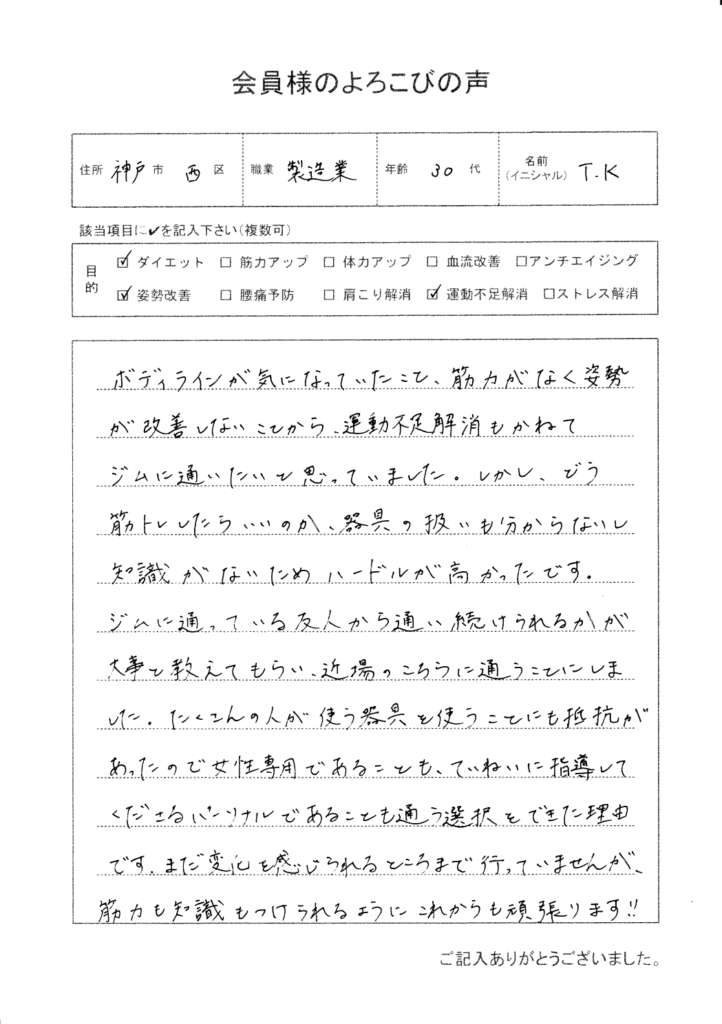 会員様のよろこびの声
住所 神戸 市 西 区 職業 製造業 年齢 30 代 名前(イニシャル) T.K
該当項目に✔を記入下さい(複数可)
目的
☑ ダイエット □ 筋力アップ □ 体力アップ □ 血流改善 □アンチエイジング
☑ 姿勢改善 □ 腰痛予防 □ 肩こり解消 ☑ 運動不足解消 □ストレス解消
ボディラインが気になっていたこと、筋力がなく姿勢
が改善しないことから、運動不足解消もかねて
ジムに通いたいと思っていました。しかし、どう
筋トレしたらいいのか、器具の扱いも分からないし
知識がないためハードルが高かったです。
ジムに通っている友人から通い続けられるかが
大事と教えてもらい、近場のこちらに通うことにしま
した。たくさんの人が使う器具を使うことにも抵抗が
あったので女性専用であることも、ていねいに指導して
くださるパーソナルであることも通う選択をできた理由
です。まだ変化を感じられるところまで行っていませんが、
筋力も知識もつけられるようにこれからも頑張ります!!
ご記入ありがとうございました。